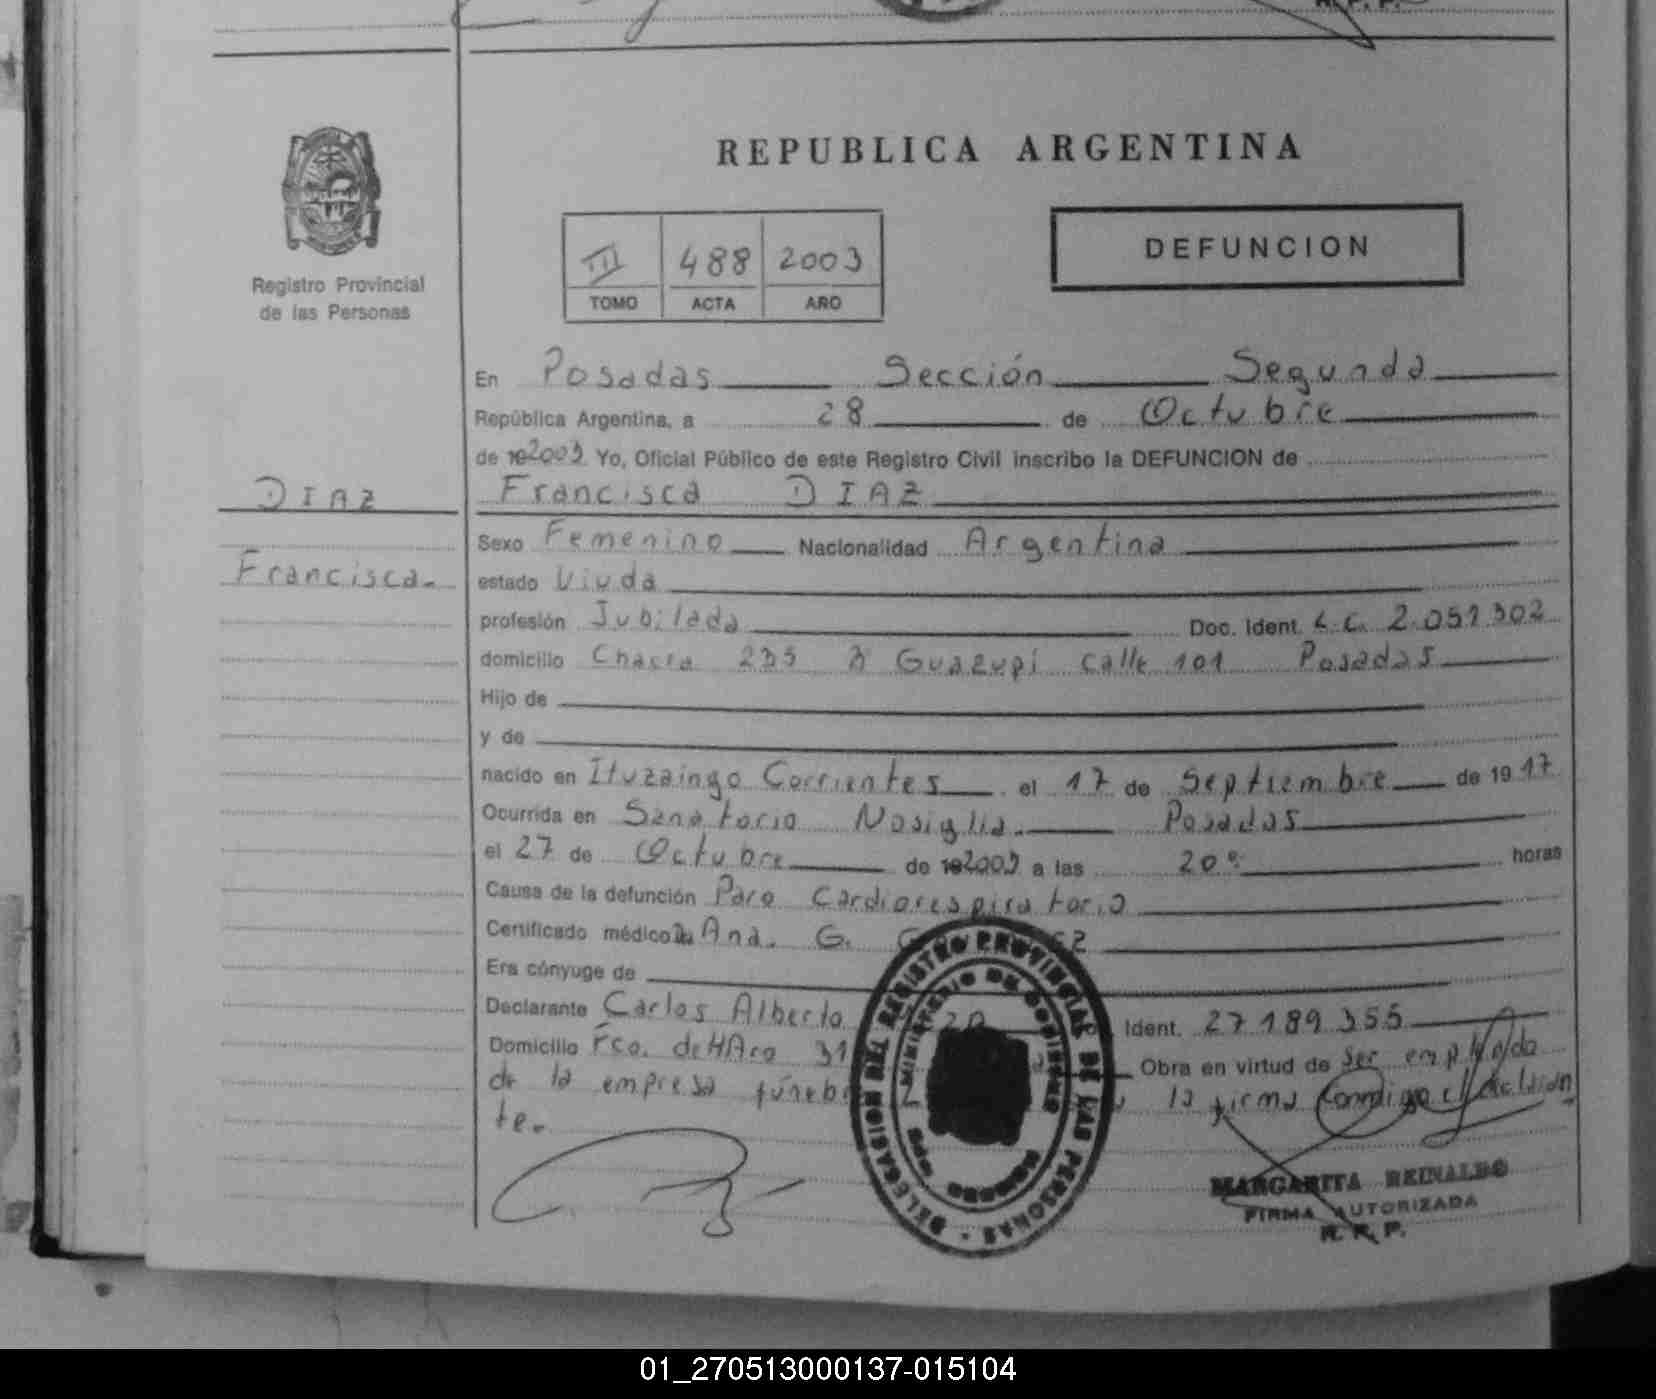 REPUBLICA ARGENTINA
Registro Provincial
de las Personas
III 488 2003
TOMO ACTA AÑO
DEFUNCION
En Posadas Sección Segunda
República Argentina, a 28 de Octubre
de 192003 Yo, Oficial Público de este Registro Civil inscribo la DEFUNCION de
DIAZ
Francisca DIAZ
Sexo Femenino Nacionalidad Argentina
Francisca.
estado Viuda
profesión Jubilada Doc. Ident. L.C. 2.051.302
domicilio Chacra 235 Guazupi calle 101 Posadas
Hijo de
y de
nacido en Ituzaingo Corrientes el 17 de Septiembre de 1917
Ocurrida en Sanatorio Nosiglia. Posadas
el 27 de Octubre de 192003 a las 20 horas
Causa de la defunción Paro Cardiorespiratorio
Certificado médico Ana. G.
Era cónyuge de
Declarante Carlos Alberto Ident. 27.189.355
Domicilio Fco. de HAro 31 Obra en virtud de ser empleado
de la empresa la firma conmigo el declaran
te.
DELEGACION DEL REGISTRO PROVINCIAL DE LAS PERSONAS
MINISTERIO DE GOBIERNO
MARGARITA REINALDO
FIRMA AUTORIZADA
R. P. P.
01_270513000137-015104